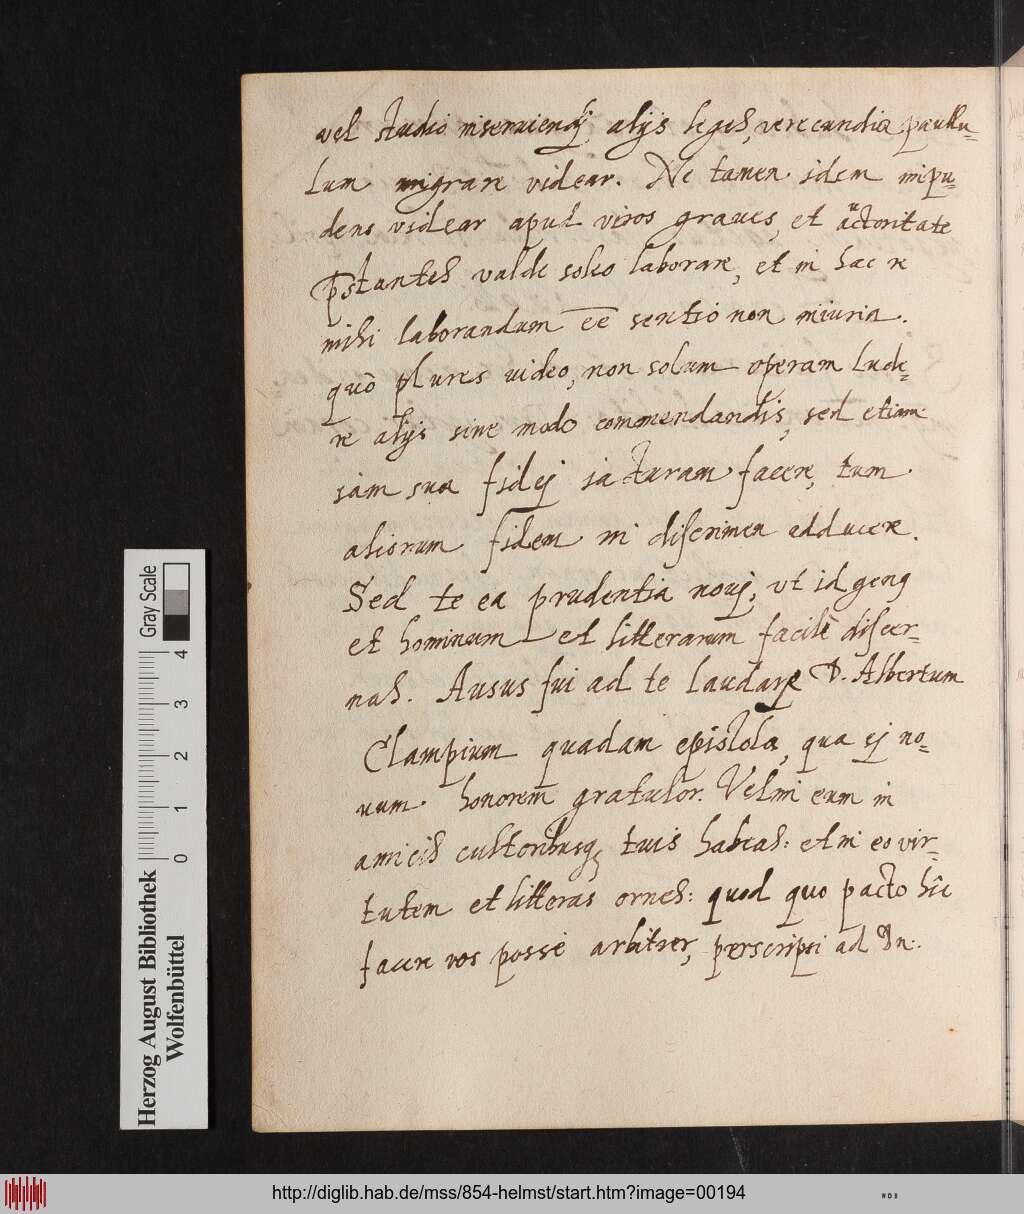 vel studio inseruiendj alijs leges verecundia paullu-
lum migrare videar. Ne tamen idem impu-
dens videar apud viros graues, et auctoritate
pstantes valde soleo laborare, et in hac re
mihi laborandum ēē sentio non iniuria.
quò plures video, non solum operam lude-
re alijs sine modo commendandis, sed etiam
iam sua fidej iacturam facere, tum
aliorum fidem in discrimen adducere.
Sed te ea prudentia nouj, vt id geng
et hominum et litterarum facilè discer-
nas. Ausus fui ad te laudare D. Albertum
Clampium quadam epistola, qua ej no-
uum honorem gratulor. Velim eum in
amicis cultoribusq tuis habeas: et in eo vir-
tutem et litteras ornes: quod quo pacto hîc
facere vos posse arbitrer, perscripsi ad Dn:.
Herzog August Bibliothek
Wolfenbüttel
0 1 2 3 4
Gray Scale
http://diglib.hab.de/mss/854-helmst/start.htm?image=00194